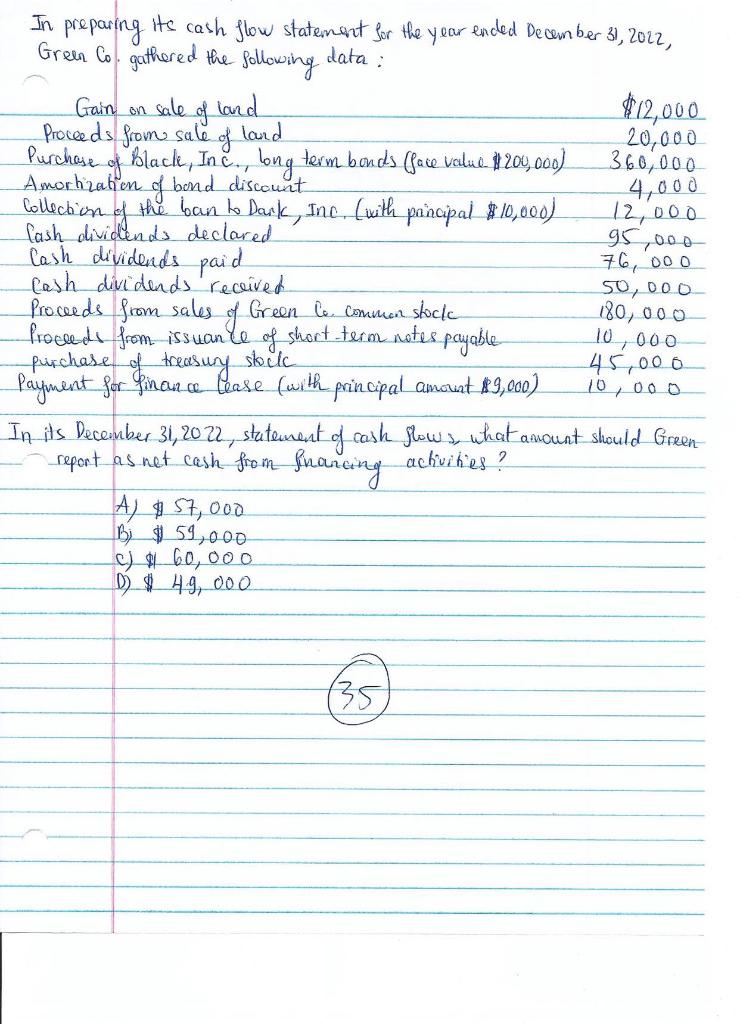 In preparing its cash flow statement for the year ended December 31, 2022,
Green Co. gathered the following data :
Gain on sale of land $12,000
Proceeds from sale of land 20,000
Purchase of Black, Inc., long term bonds (face value $200,000) 360,000
Amortization of bond discount 4,000
Collection of the loan to Dark, Inc. (with principal $10,000) 12,000
Cash dividends declared 95,000
Cash dividends paid 76,000
Cash dividends received 50,000
Proceeds from sales of Green Co. common stock 180,000
Proceeds from issuance of short-term notes payable 10,000
purchase of treasury stock 45,000
Payment for finance lease (with principal amount $9,000) 10,000
In its December 31, 2022, statement of cash flows, what amount should Green
report as net cash from financing activities ?
A) $ 57,000
B) $ 59,000
C) $ 60,000
D) $ 49,000
35